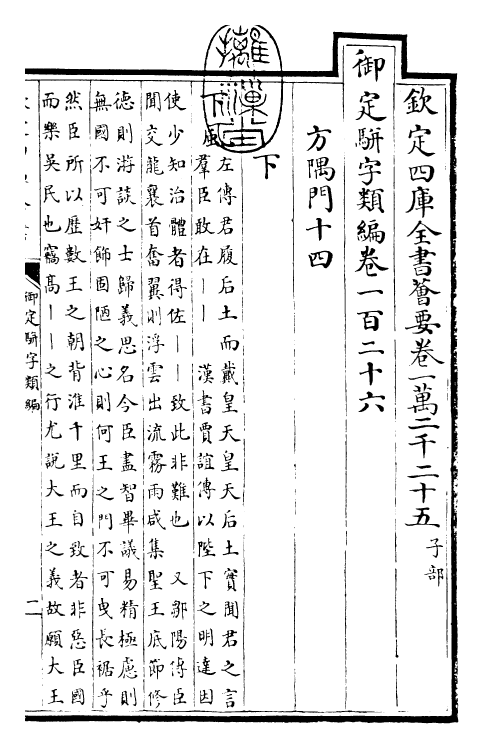 欽定四庫全書薈要卷一萬二千二十五 子部
御定駢字類編卷一百二十六
方隅門十四
下
下風
左傳君履后土而戴皇天皇天后土實聞君之言
羣臣敢在——　漢書賈誼傳以陛下之明達因
使少知治體者得佐——致此非難也　又鄒陽傳臣
聞交龍襄首奮翼則浮雲出流霧雨咸集聖王底節修
德則游談之士歸義思名今臣盡智畢議易精極慮則
無國不可奸飾固陋之心則何王之門不可曳長裾乎
然臣所以歷數王之朝背淮千里而自致者非惡臣國
而樂吳民也竊高——之行尤說大王之義故願大王
御定駢字類編